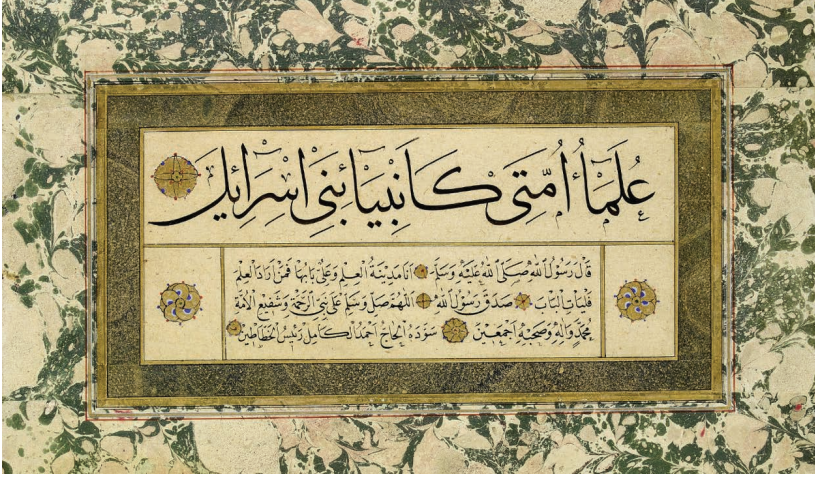 عُلَمَاۤءُ اُمَّتِى كَاَنْبِيَاۤءِ بَنِى اِسْرَائِيلَ
قَالَ رَسُولُ اللّٰهِ صَلَّى اللّٰهُ عَلَيْهِ وَسَلَّمَ اَنَا مَدِينَةُ الْعِلْمِ وَعَلِىٌّ بَابُهَا فَمَنْ اَرَادَ الْعِلْمَ
فَلْيَاْتِ الْبَابَ صَدَقَ رَسُولُ اللّٰهِ اَللّٰهُمَّ صَلِّ وَسَلِّمْ عَلَى نَبِىِّ الرَّحْمَةِ وَشَفِيعِ الْاُمَّةِ
مُحَمَّدٍ وَاٰلِهِ وَصَحْبِهِ اَجْمَعِينَ سَوَّدَهُ الْحَاجّ اَحْمَدُ الْكَامِلُ رَئِيسُ الْخَطَّاطِينَ